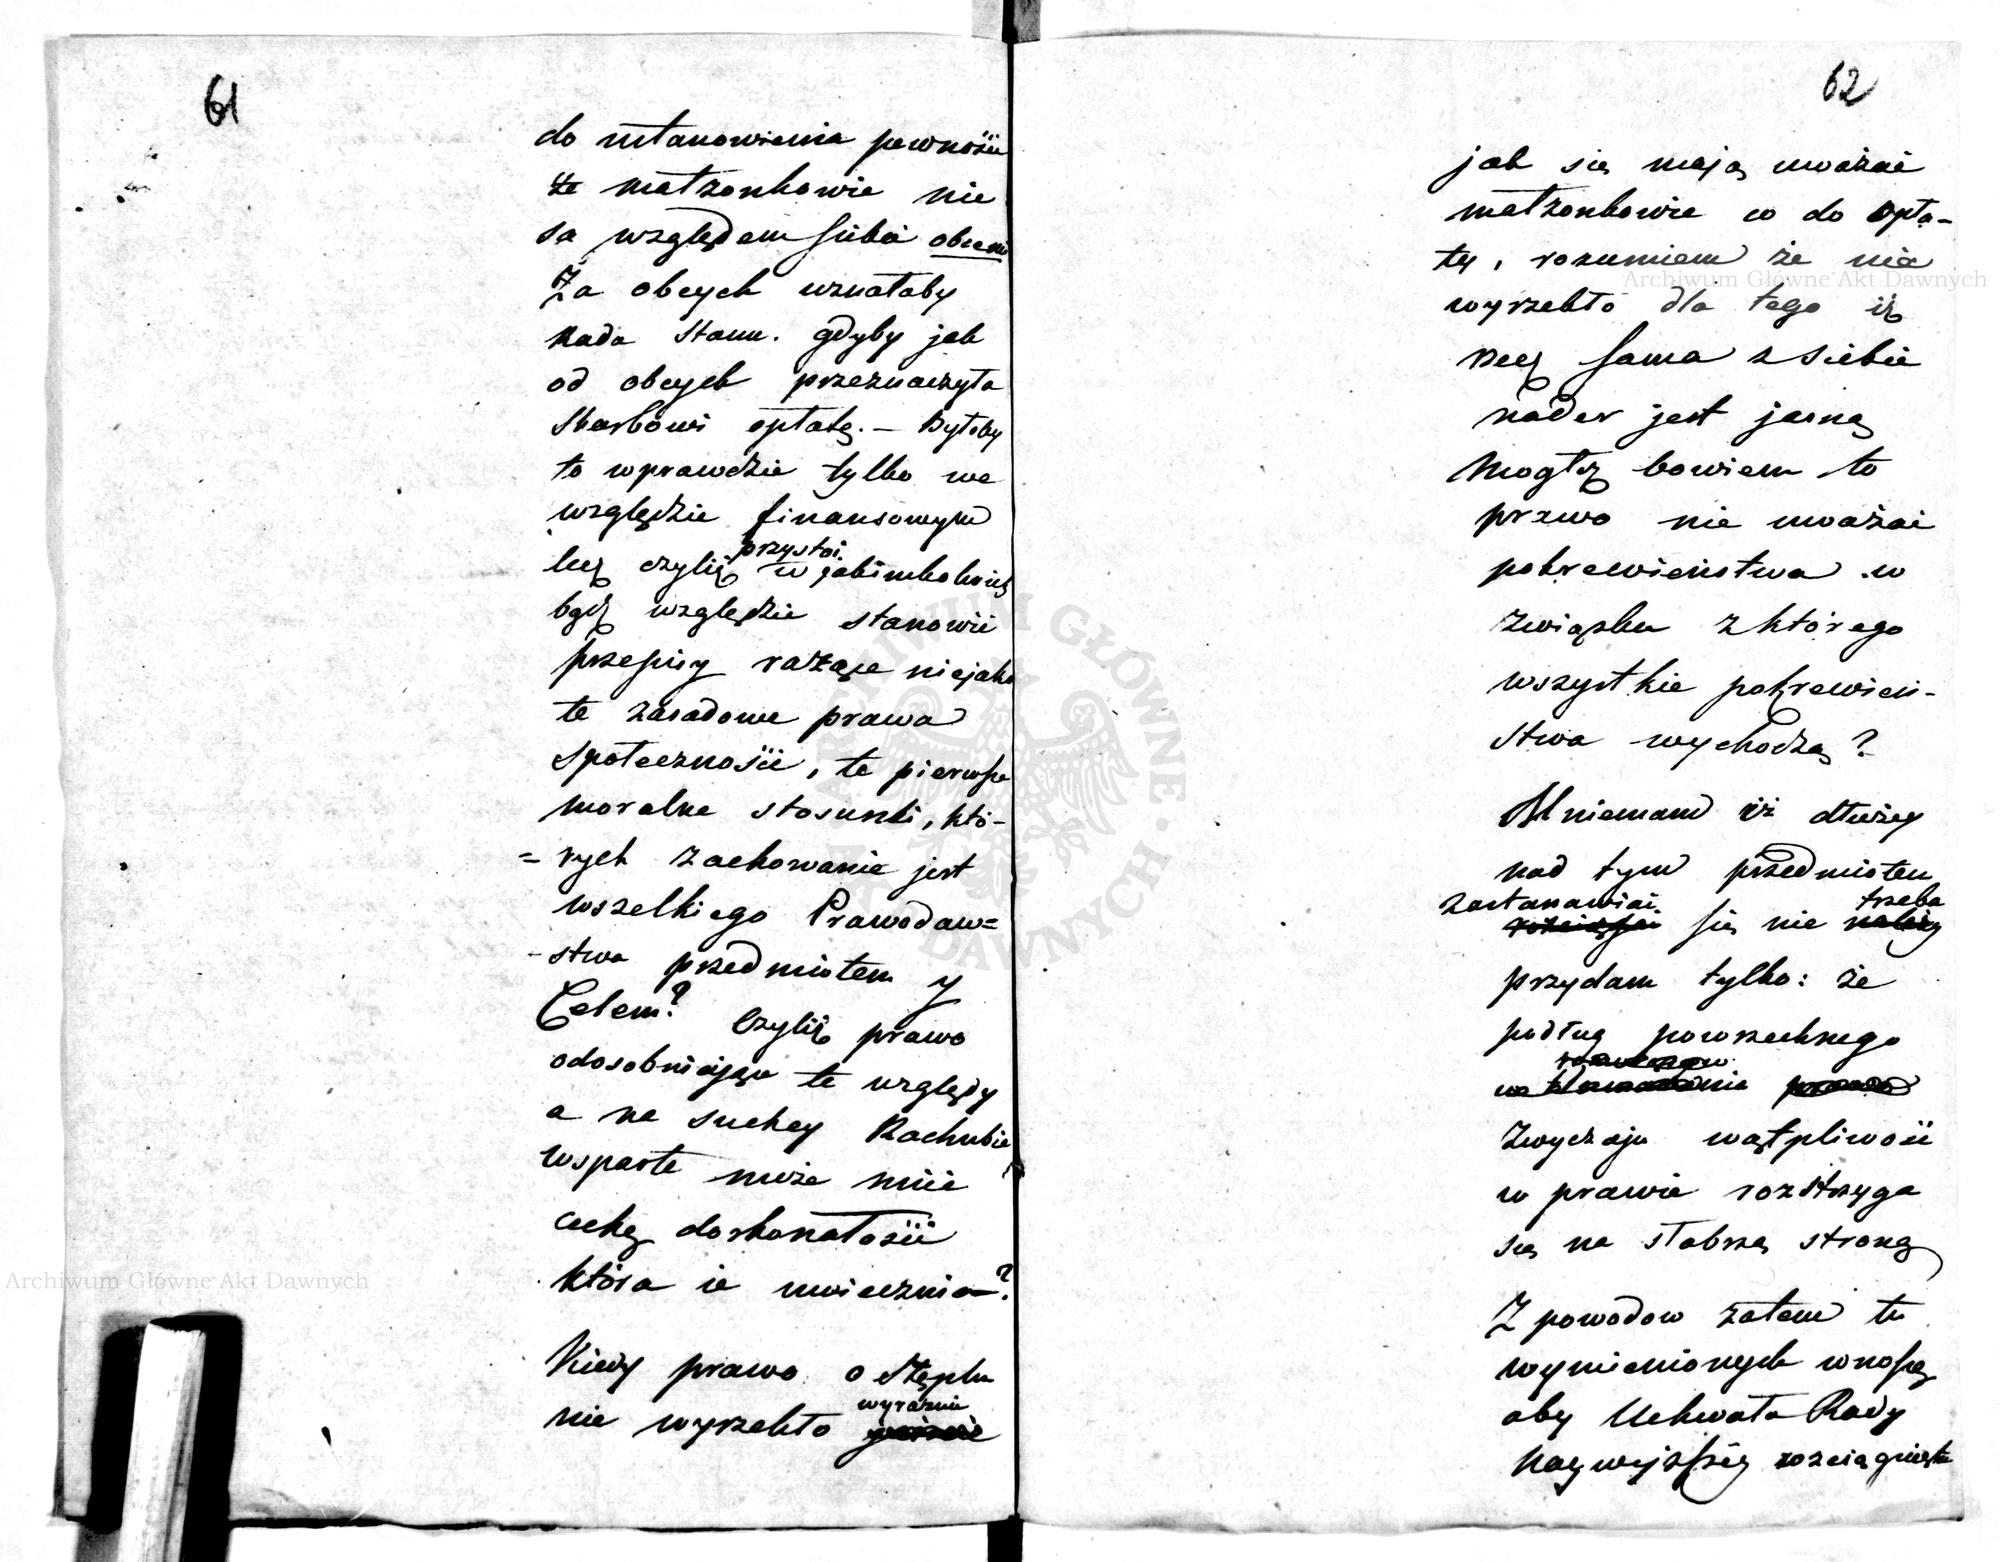 61
do ustanowienia pewności
że małżonkowie nie
są względem siebie obcemi
Za obcych uznałaby
Rada Stanu. gdyby jak
od obcych przeznaczyła
Skarbowi opłatę. – Byłoby
to wprawdzie tylko we
względzie finansowym
lecz czyliż przystoi w jakimkolwiek
bądź względzie stanowić
przepisy rażące niejako
te zasadowe prawa
społeczności, te pierwsze
moralne stosunki, któ-
= rych zachowanie jest
wszelkiego Prawodaw=
- stwa przedmiotem y
Celem? Czyliż prawo
odosobniające te względy
a na suchey Rachubie
wsparte może mieć
cechę doskonałości
która ie uwiecznia?
Kiedy prawo o Stęplu
nie wyrzekło wyraźnie
62
jak się mają uważać
małżonkowie co do opła-
ty, rozumiem że nie
wyrzekło dla tego iż
rzecz sama z siebie
nader jest jasną
Mogłoż bowiem to
prawo nie uważać
pokrewieństwa w
związku z którego
wszystkie pokrewień-
stwa wychodzą?
Mniemam iż dłużey
nad tym przedmiotem
zastanawiać się nie trzeba
przydam tylko: że
podług powszechnego
zwyczaju wątpliwość
w prawie rozstrzyga
się na słabszą stronę
Z powodow zatem tu
wymienionych wnoszę
aby Uchwała Rady
Naywyższey rozciągnięta
Archiwum Główne Akt Dawnych
Archiwum Główne Akt Dawnych
ARCHIWUM GŁÓWNE AKT DAWNYCH